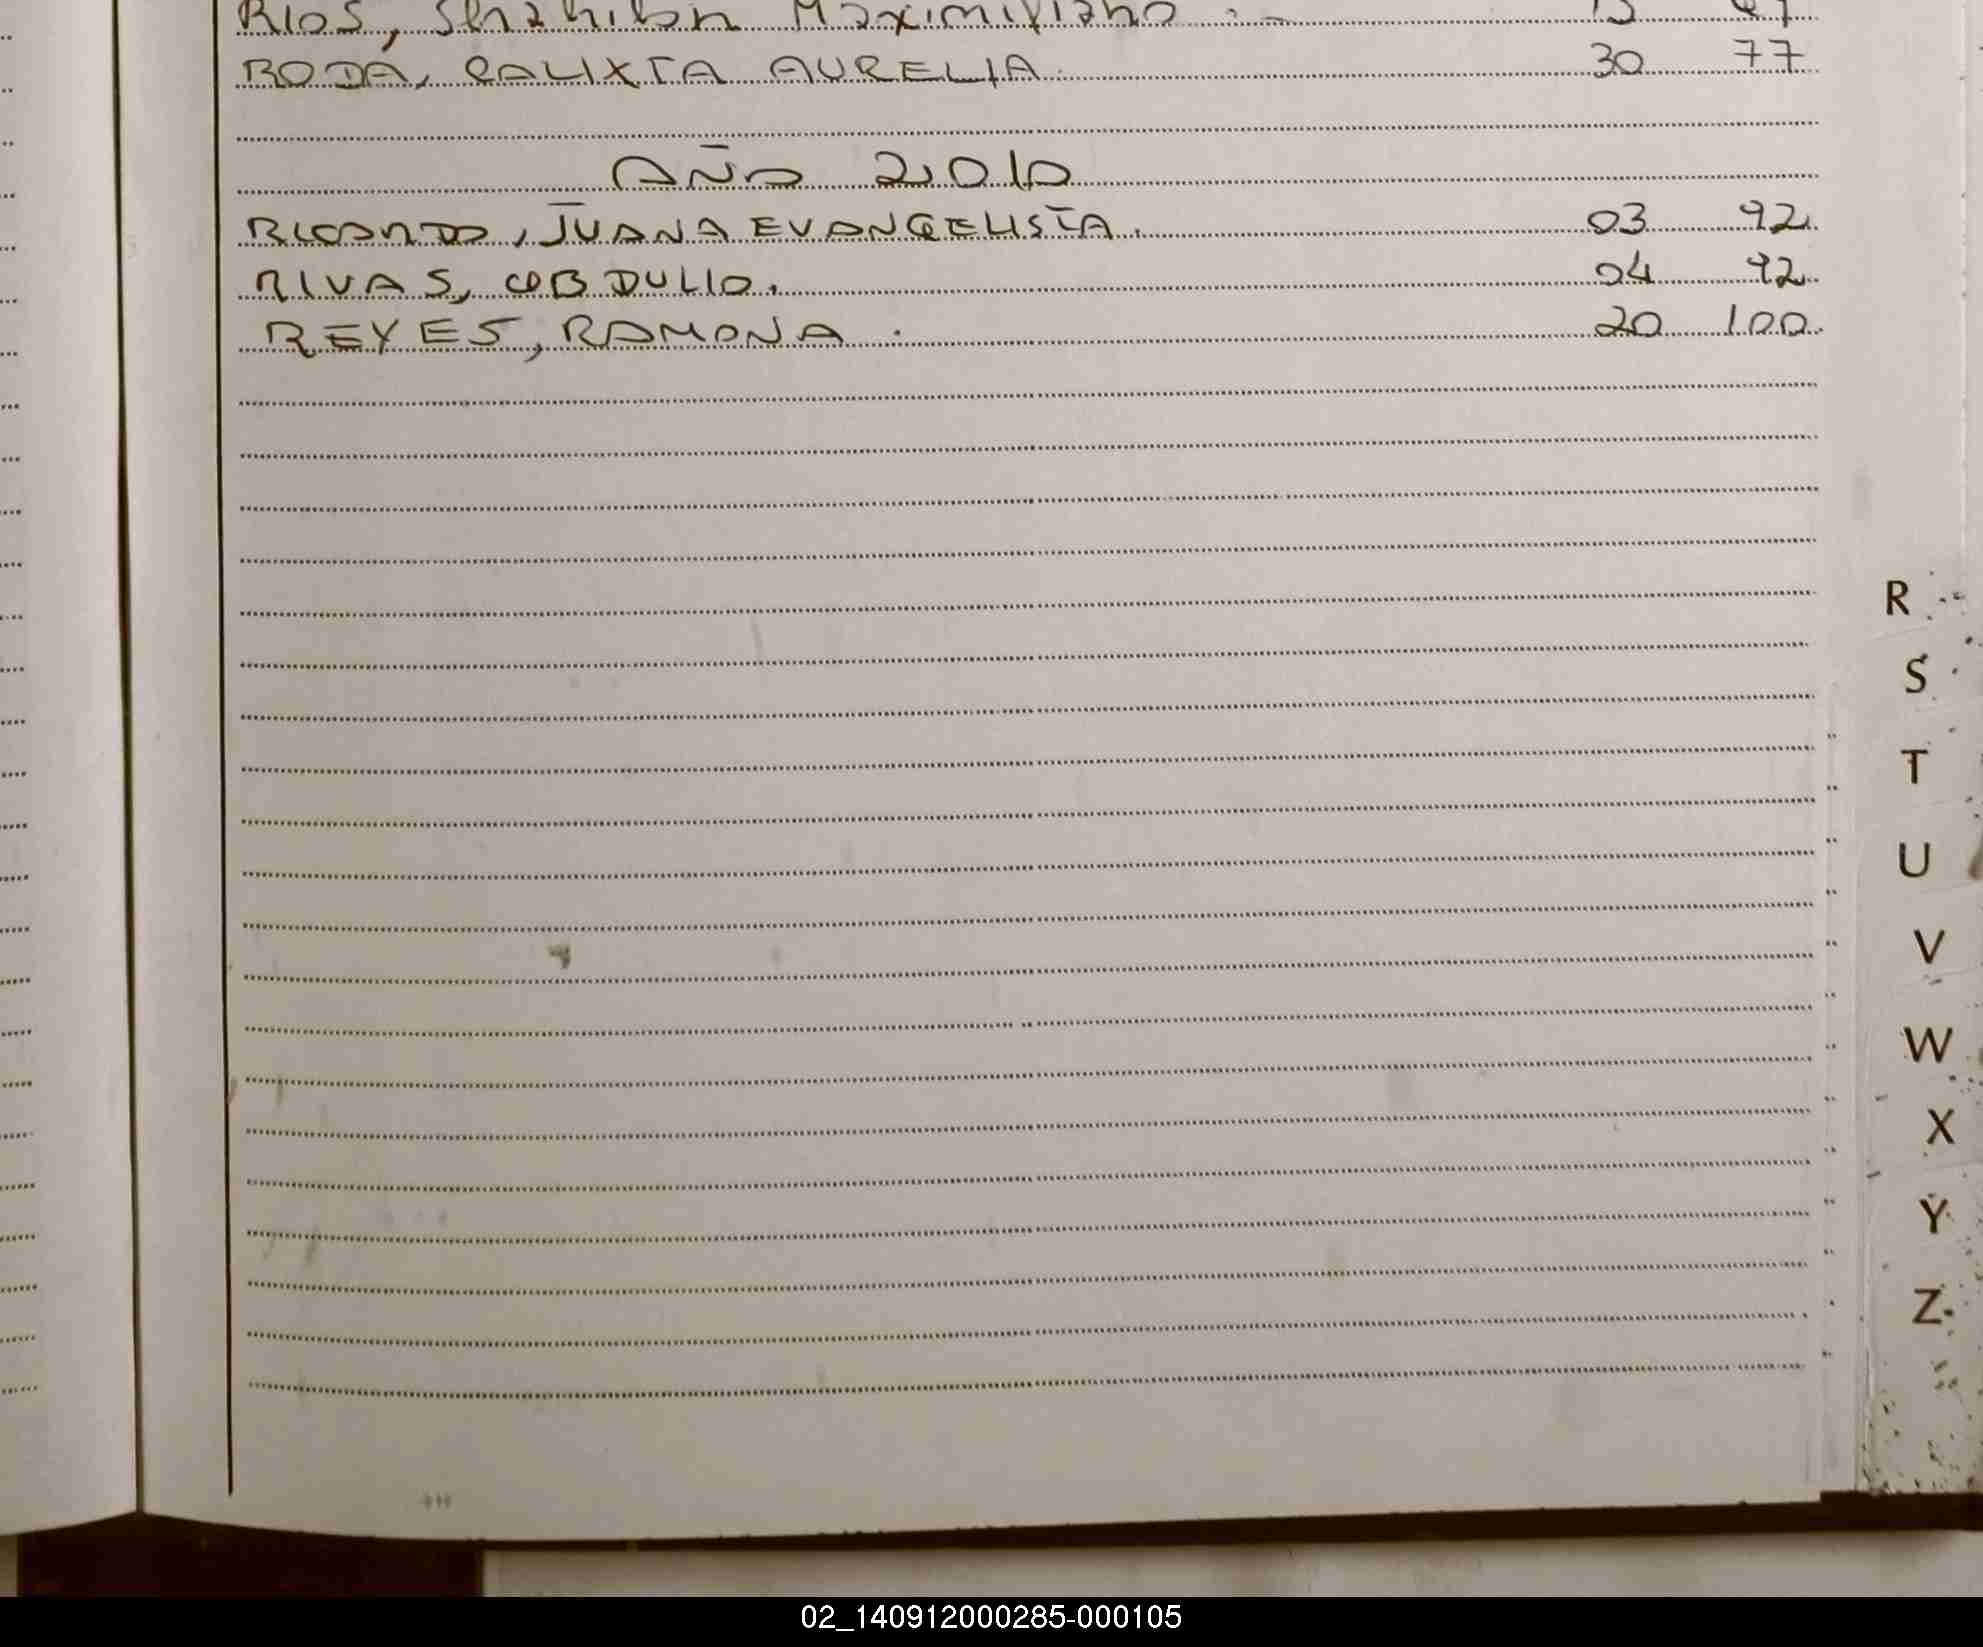 RIOS, Maximiliano . -
RODA, CALIXTA AURELIA. 30 77
AÑO 2010
RICARDO, JUANA EVANGELISTA. 03 92
RIVAS, OBDULIO. 04 92
REYES, RAMONA . 20 100
R
S
T
U
V
W
X
Y
Z
02_140912000285-000105